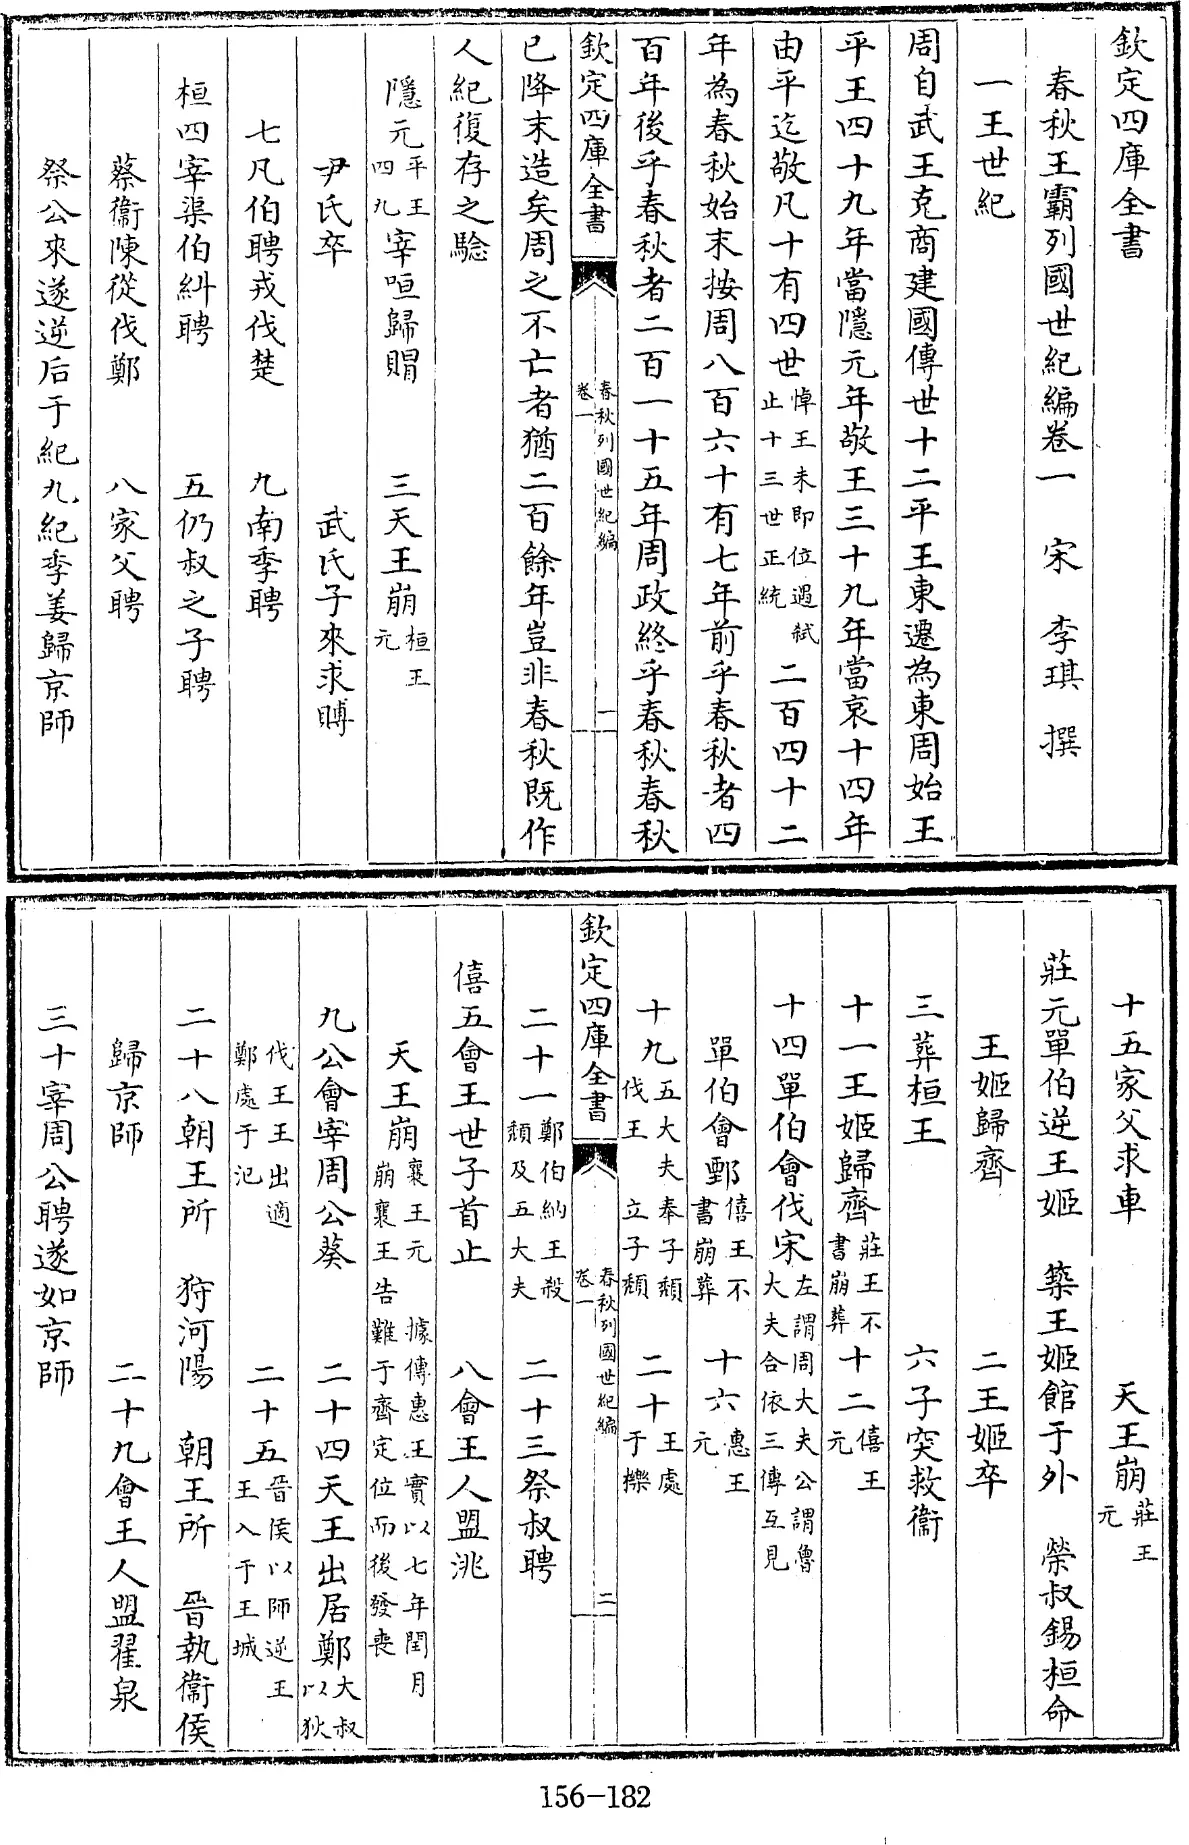 欽定四庫全書
春秋王霸列國世紀編卷一　宋　李琪　撰
一王世紀
周自武王克商建國傳世十二平王東遷為東周始王
平王四十九年當隱元年敬王三十九年當哀十四年
由平迄敬凡十有四世悼王未即位遇弒止十三世正統二百四十二
年為春秋始末按周八百六十有七年前乎春秋者四
百年後乎春秋者二百一十五年周政終乎春秋春秋
欽定四庫全書　春秋列國世紀編　卷一　一
已降末造矣周之不亡者猶二百餘年豈非春秋既作
人紀復存之驗
隱元平王四九宰咺歸賵　三天王崩桓王元
尹氏卒　武氏子來求賻
七凡伯聘戎伐楚　九南季聘
桓四宰渠伯糾聘　五仍叔之子聘
蔡衞陳從伐鄭　八家父聘
祭公來遂逆后于紀九紀季姜歸京師
十五家父求車　天王崩莊王元
莊元單伯逆王姬　築王姬館于外　榮叔錫桓命
王姬歸齊　二王姬卒
三葬桓王　六子突救衞
十一王姬歸齊莊王不書崩葬十二僖王元
十四單伯會伐宋左謂周大夫公謂魯大夫合依三傳互見
單伯會鄄僖王不書崩葬　十六惠王元
十九五大夫奉子頽伐王　立子頽　二十王處于櫟
欽定四庫全書　春秋列國世紀編　卷一　二
二十一鄭伯納王殺頽及五大夫　二十三祭叔聘
僖五會王世子首止　八會王人盟洮
天王崩襄王元　據傳惠王實以七年閏月崩襄王告難于齊定位而後發喪
九公會宰周公葵　二十四天王出居鄭大叔以狄
伐王王出適鄭處于氾　二十五晉侯以師逆王王入于王城
二十八朝王所　狩河陽　朝王所　晉執衞侯
歸京師　二十九會王人盟翟泉
三十宰周公聘遂如京師
156-182